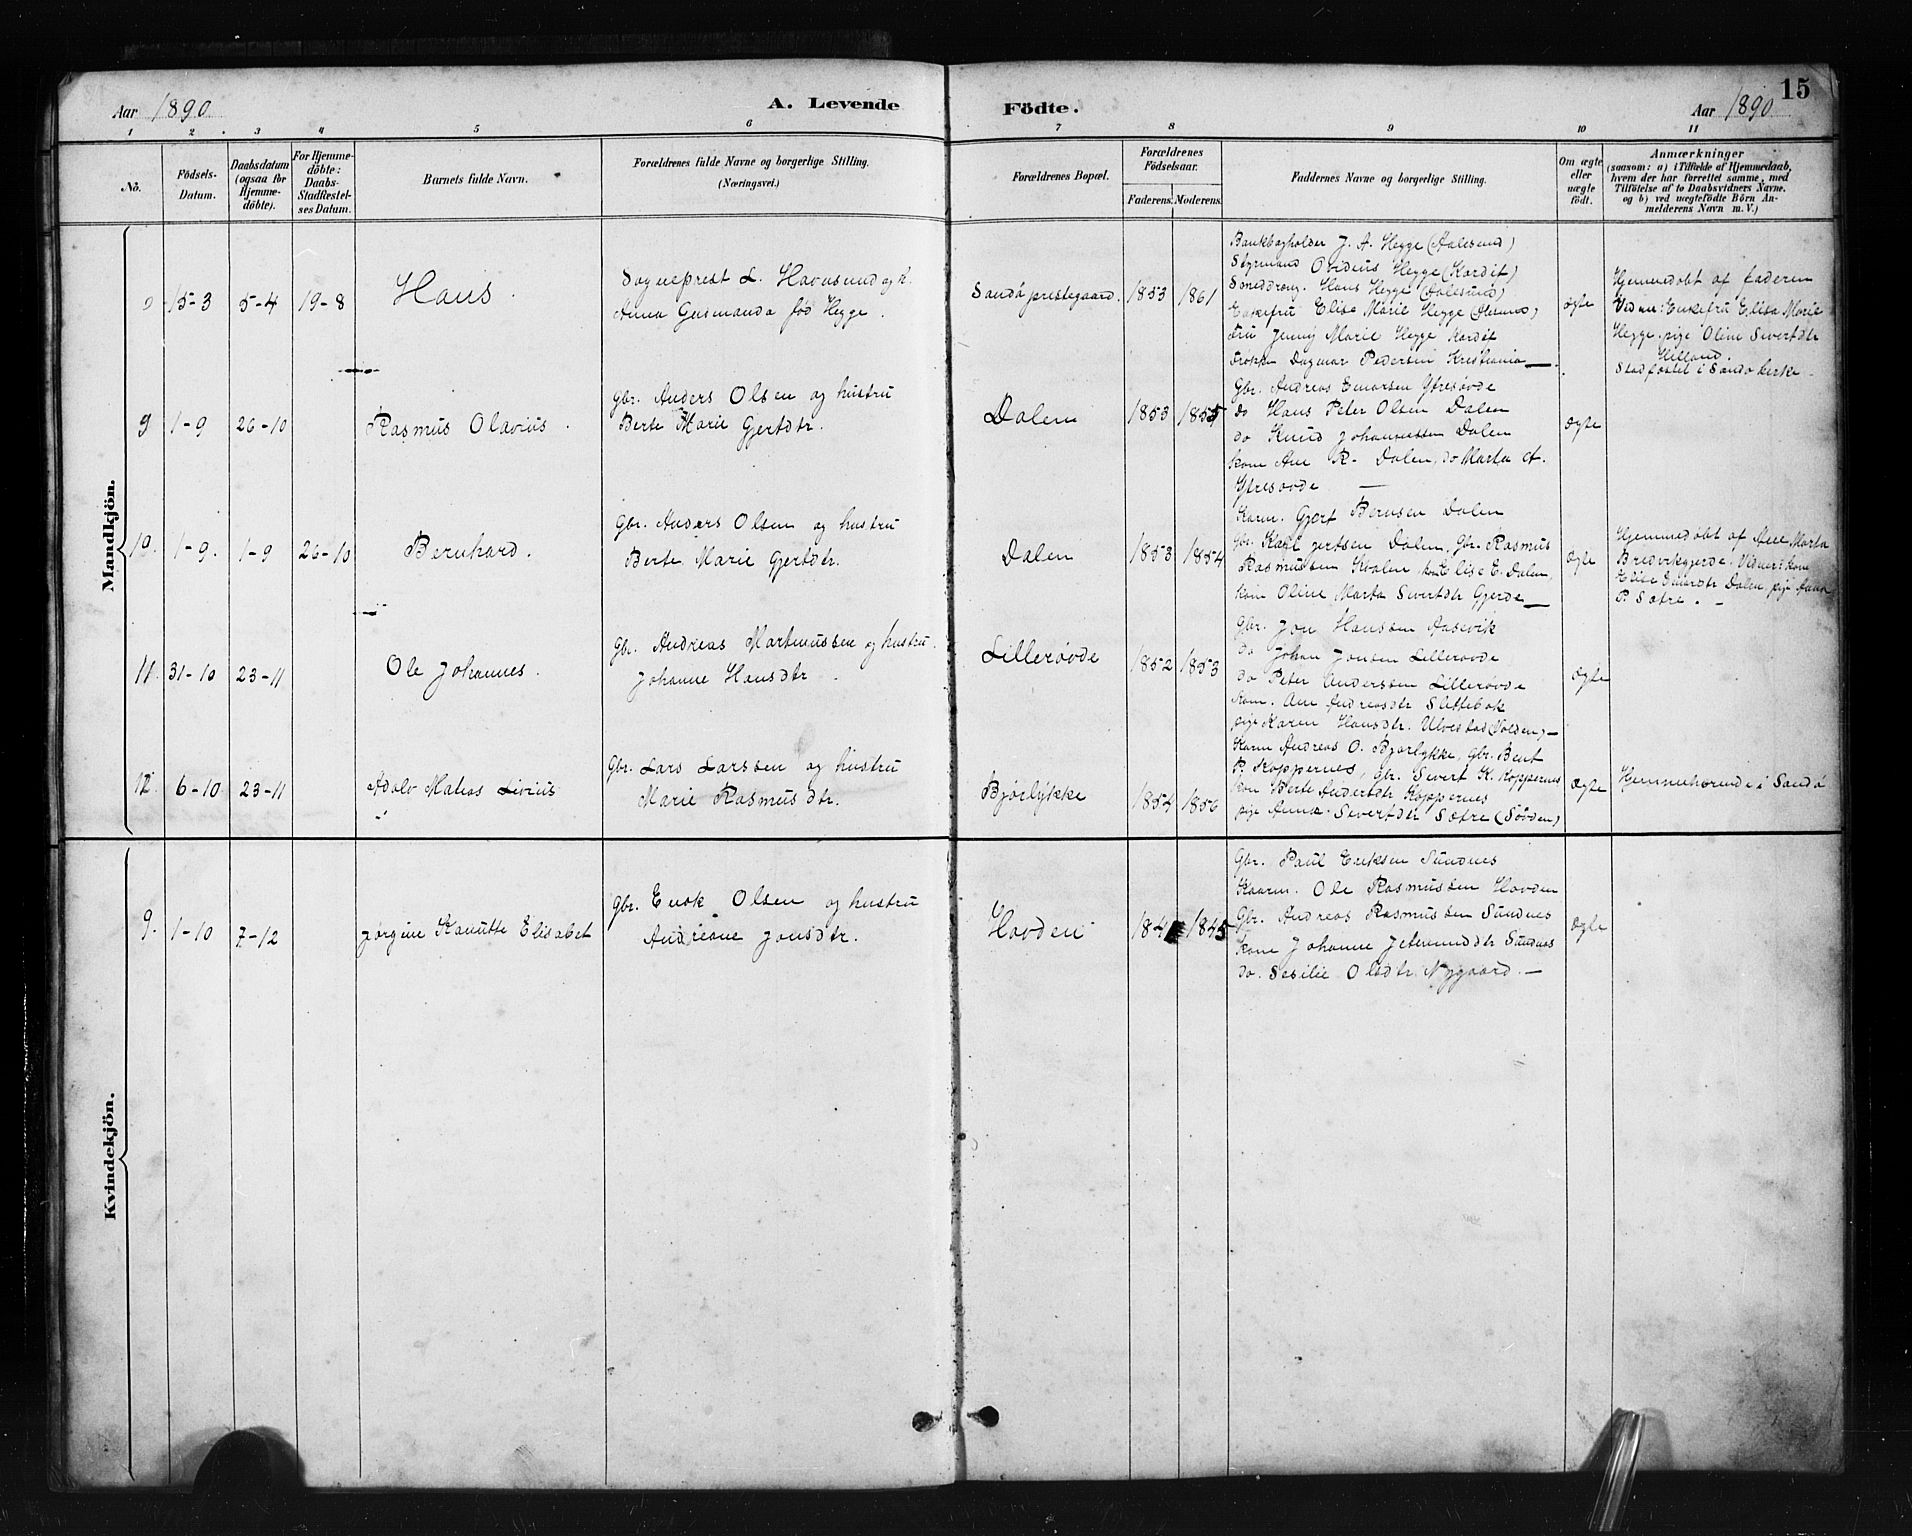 15
Aar 1890
A. Levende Födte.
Aar 1890
1 2 3 4 5 6 7 8 9 10 11
No.
Födsels-Datum.
Daabsdatum (ogsaa for Hjemme-döbte).
For Hjemme-döbte: Daabs-Stadfæstel-ses Datum.
Barnets fulde Navn.
Forældrenes fulde Navne og borgerlige Stilling.
(Næringsvei.)
Forældrenes Bopæl.
Forældrenes Födselsaar.
Faderens. Moderens.
Faddernes Navne og borgerlige Stilling.
Om ægte eller uægte födt.
Anmærkninger
(saasom: a) i Tilfælde af Hjemmedaab,
hvem der har forrettet samme, med
Tilföielse af to Daabsvidners Navne,
og b) ved uægtefödte Börn An-
melderens Navn m. V.)
Mandkjön.
15-3 5-4 19-8
Hans.
Sogneprest L. Havnsund og h.
Anna Gusmanda fød Hegge.
Sandø prestegaard. 1853 1861
Bankbogholder J. A. Hegge (Aalesund)
Styrmand Ovidius Hegge (Kardif)
Smeddreng. Hans Hegge (Aalesund)
Enkefru Elisa Marie Hegge (Alesund)
Fru Jenny Marie Hegge Kardif
Frøken Dagmar Pedersen Kristiania
ægte
Hjemmedøbt af faderen
Vidner: Enkefru Elisa Marie
Hegge, pige Oline Sivertdtr
Stadfæstet i Sandø kirke
9 1-9 26-10
Rasmus Olavius.
Gbr. Anders Olsen og hustru
Berte Marie Gjertdtr.
Dalen 1853 1855
Gbr. Andreas Enarsen Ytresøvde
do Hans Peter Olsen Dalen
do Knud Johannessen Dalen
kone Ane R. Dalen, do Marta A.
Ytresøvde
ægte
10. 1-9. 1-9 26-10
Bernhard.
Gbr. Anders Olsen og hustru
Berte Marie Gjertdtr.
Dalen 1853 1854
Kaarm. Gjert Berntsen Dalen
gbr. Karl Gjertsen Dalen. Gbr. Rasmus
Rasmussen Kvalen, kone Elise E. Dalen,
kone Oline Marta Sivertdtr Gjerde
ægte
Hjemmedøbt af Ane Marta
Bredvikgjerde. Vidner: kone
Elise Enardtr Dalen, pige Anna
P. Sætre.
11. 31-10 23-11
Ole Johannes.
Gbr. Andreas Martinussen og hustru
Johanne Hansdtr.
Lillesøvde 1852 1853
Gbr. Jon Hanssen Aasevik
do Johan Jonsen Lillesøvde
do Peter Anderssen Lillesøvde
kone. Ane Andreasdtr Slettebak
pige Karen Hansdtr. Ulvestad (Volden)
ægte
12. 6-10 23-11
Adolv Matias Livius
Gbr. Lars Larssen og hustru
Marie Rasmusdtr.
Bjørlykke 1854 1856
Kaarm Andreas O. Bjørlykke, Gbr. Bent
P. Koppernes, gbr. Sivert K. Koppernes
kone Berte Andersdtr Koppernes
pige Anna Sivertdtr Sætre (Søvden)
ægte
Hjemmehørende i Sandø
Kvindekjön.
9. 1-10 7-12
Jørgine Kanutte Elisabet
Gbr. Enok Olsen og hustru
Andreane Jonsdtr.
Hovden 1845
Gbr. Paul Eriksen Sundnes
Kaarm. Ole Rasmussen Hovden
Gbr. Andreas Rasmussen Sundnes
Kone Johanne Jetmunddtr Sundnes
do. Sesilie Olsdtr Nygaard.
ægte